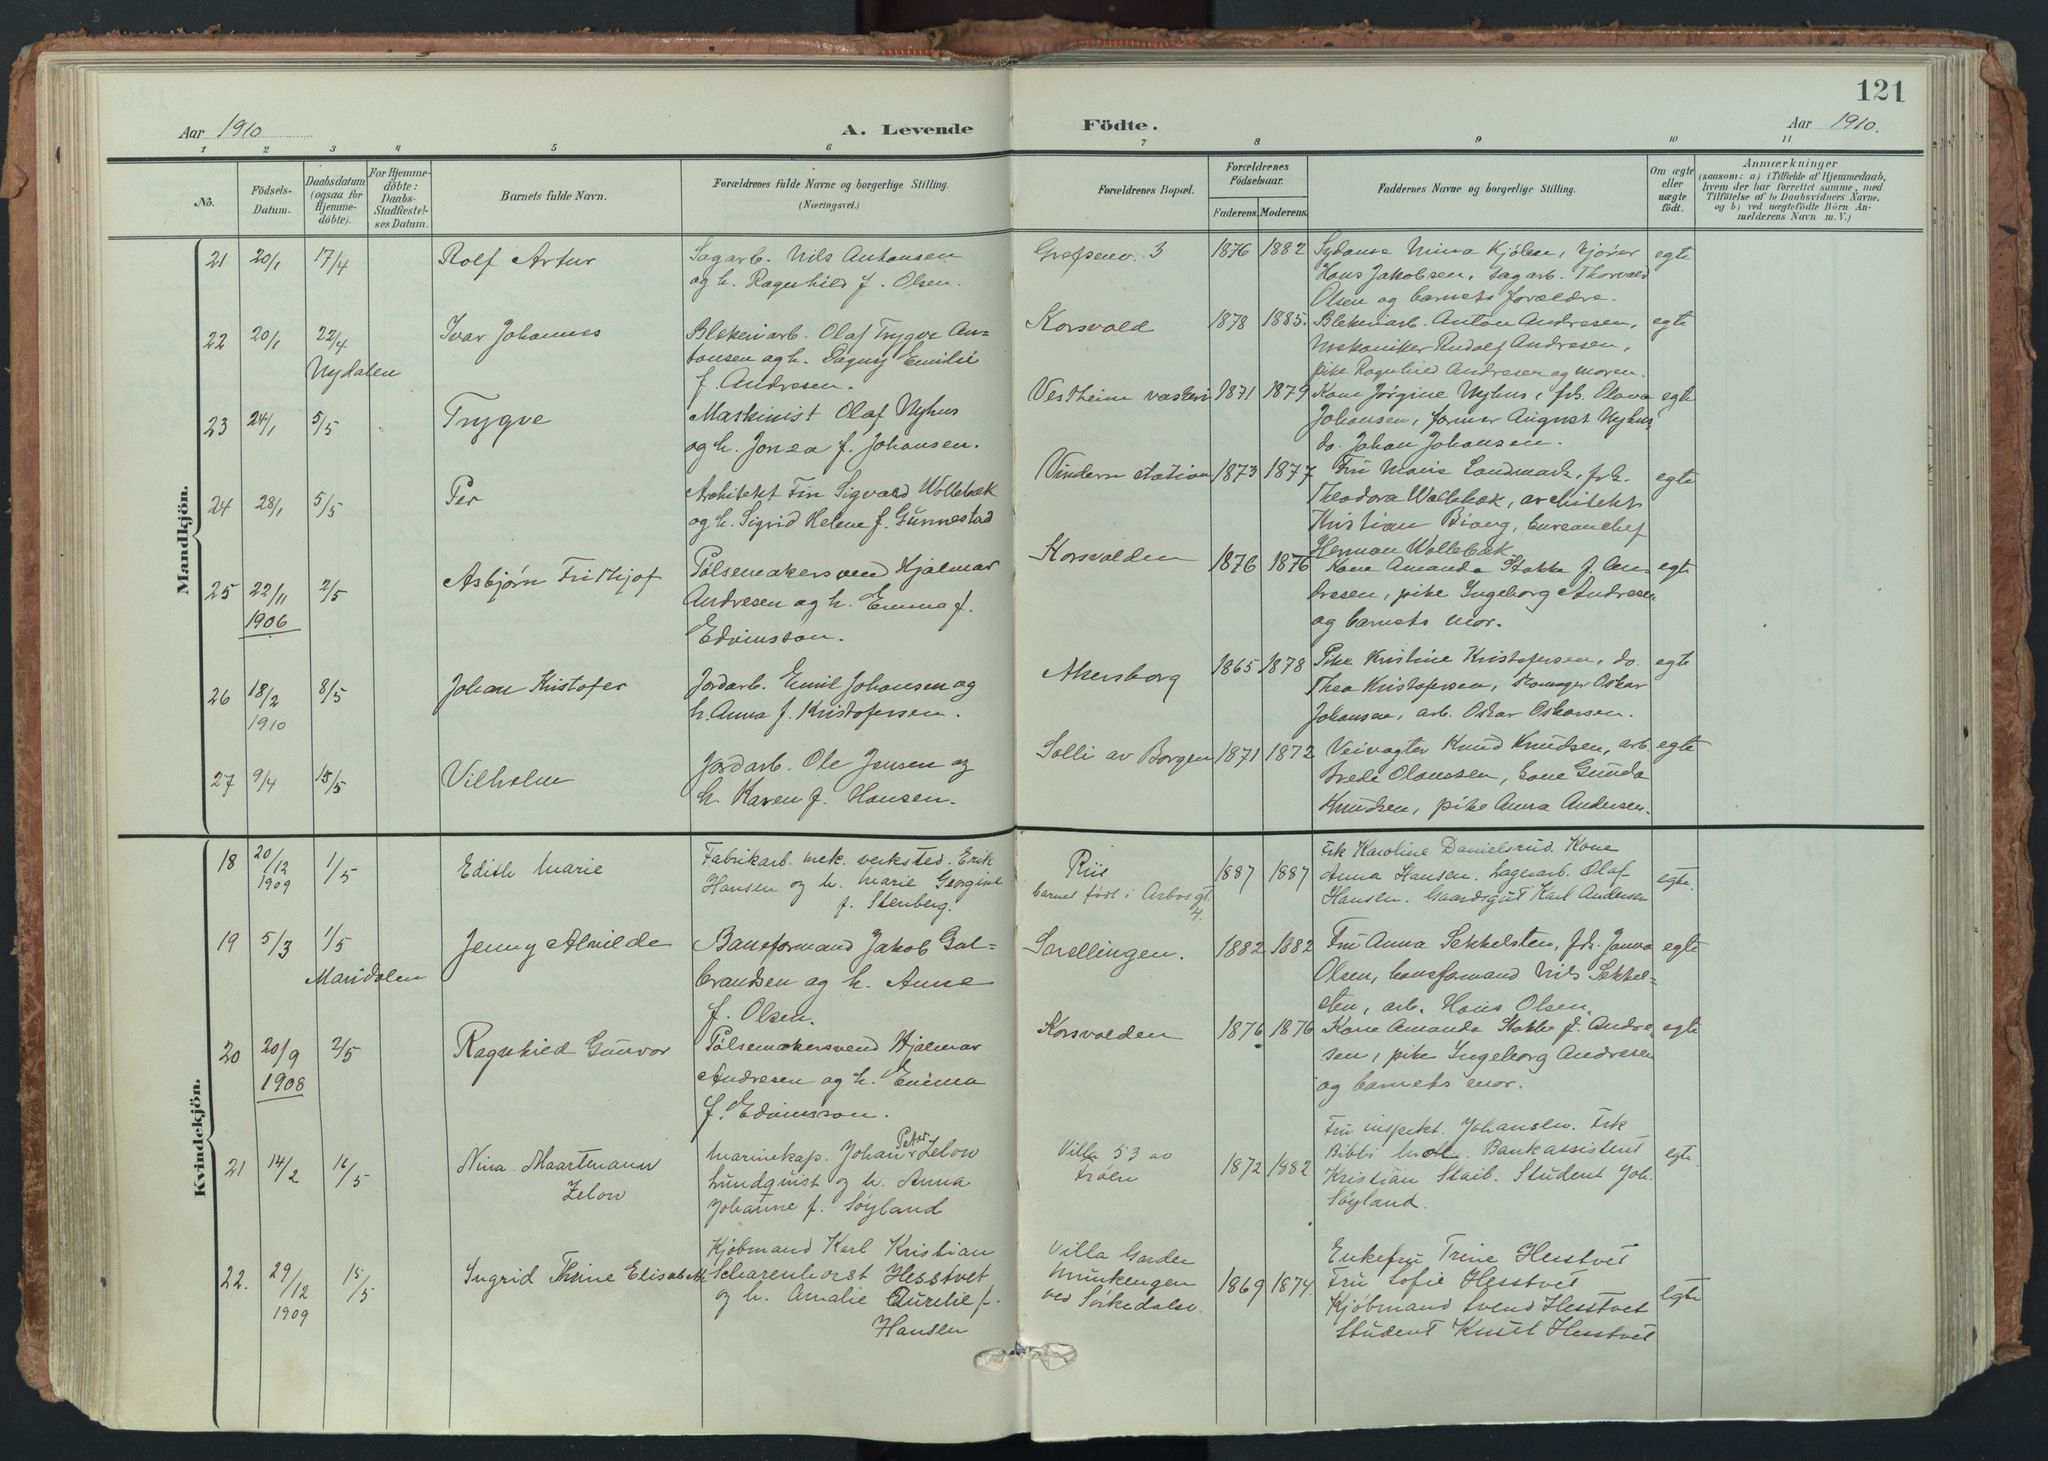 121
Aar 1910 A. Levende Födte. Aar 1910.
1 2 3 4 5 6 7 8 9 10 11
No.
Födsels-
Datum.
Daabsdatum
(ogsaa for
Hjemme-
döbte).
For Hjemme-
döbte:
Daabs-
Stadfæstel-
ses Datum.
Barnets fulde Navn.
Forældrenes fulde Navne og borgerlige Stilling.
(Næringsvei.)
Forældrenes Bopæl.
Forældrenes
Födselsaar.
Faderens. Moderens.
Faddernes Navne og borgerlige Stilling.
Om ægte
eller
uægte
födt.
Anmærkninger
(saasom: a) i Tilfælde af Hjemmedaab,
hvem der har forrettet samme, med
Tilföielse af to Daabsvidners Navne,
og b) ved uægtefödte Börn An-
melderens Navn m. V.)
Mandkjön.
21 20/1 17/4 Rolf Artur
Sagarb. Nils Antonsen
og h. Ragnhild f. Olsen.
Grefsenv. 3 1876 1882
Sydame Mina Kjölsen, kjører
Hans Jakobsen, sagarb. Thorvald
Olsen og barnets forældre.
egte
22 20/1 22/4
Nydalen
Ivar Johannes
Blekeriarb. Olaf Trygve An-
tonsen og h. Dagny Emilie
f. Andresen.
Korsvold 1878 1885.
Blekeriarb. Anton Andresen,
mekaniker Rudolf Andresen,
pike Ragnhild Andresen og moren.
egte
23 24/1 5/5 Trygve
Maskinist Olaf Nyhus
og h. Jonea f. Johansen.
Vestheim vaskeri 1871 1879
Kone Jørgine Nyhus, frk. Olava
Johansen, former August Nyhus,
do. Johan Johansen.
egte
24 28/1 5/5 Per
Architekt Fin Sigvald Wollebæk
og h. Sigrid Helene f. Gunnestad
Vindern station 1873 1877
Fru Marie Landmark, frk.
Theodora Wollebæk, architekt
Kristian Biong, bureauchef
Herman Wollebæk.
egte
25 22/11
1906
2/5 Asbjørn Frithjof
Pølsemakersvend Hjalmar
Andresen og h. Emma f.
Edvinsson.
Korsvolden 1876 1876
Kone Amanda Stokke f. An-
dresen, pike Ingeborg Andresen
og barnets mor.
egte
26 18/2
1910
8/5 Johan Kristofer
Jordarb. Emil Johansen og
h. Anna f. Kristofersen.
Akersborg 1865 1878
Pike Kristine Kristofersen, do.
Thea Kristofersen, Oskar
Johansen, arb. Oskar Oskarsen.
egte
27 9/4 15/5 Vilhelm
Jordarb. Ole Jensen og
h. Karen f. Hansen.
Solli av Borgen 1871 1872
Veivogter Knud Knudsen, arb.
Brede Olaussen, kone Gunda
Knudsen, pike Anna Andersen.
egte
Kvindekjön.
18 20/12
1909
1/5 Edith Marie
Fabrikarb. mek. verksted. Erik
Hansen og h. Marie Georgine
f. Stenberg.
Riis
barnet født i Arbosgt.
4.
1887 1887
Frk Karoline Danielsrud. Kone
Anna Hansen. Lagerarb. Olaf
Hansen. Gaardsgut Karl Andersen
egte.
19 5/3 1/5
Maridalen
Jenny Alvilde
Baneformand Jakob Gul-
brandsen og h. Anne
f. Olsen.
Snellingen. 1882 1882
Fru Anna Sekkelsten, frk. Janna
Olsen, baneformand Nils Sekkel-
sten, arb. Hans Olsen.
egte
20 20/9
1908
2/5 Ragnhild Gunvor
Pølsemakersvend Hjalmar
Andresen og h. Emma
f. Edvinsson.
Korsvolden 1876 1876
Kone Amanda Stokke f. Andre-
sen, pike Ingeborg Andresen
og barnets mor.
egte
21 14/2 16/5 Nina Maartmann
Zelow
Marinekap. Johan Peter Zelow
Lundquist og h. Anna
Johanne f. Søyland
Villa 53 av
Frøen
1872 1882
Fru inspekt. Johansen. Frk
Bibbi . Bankassistent
Kristian Staib. Student Joh.
Søyland.
egte.
22. 29/12
1909
15/5 Ingrid Thrine Elisabeth
Kjøbmand Karl Kristian
Scharenhorst Hesstvet
og h. Amalie Aurelie f.
Hansen
Villa Garden
Munkengen
ved Sørkedalsv.
1869 1874.
Enkefru Trine Hesstvet
Fru Sofie Hesstvet
Kjøbmand Svend Hesstvet
Student Knut Hesstvet
egte